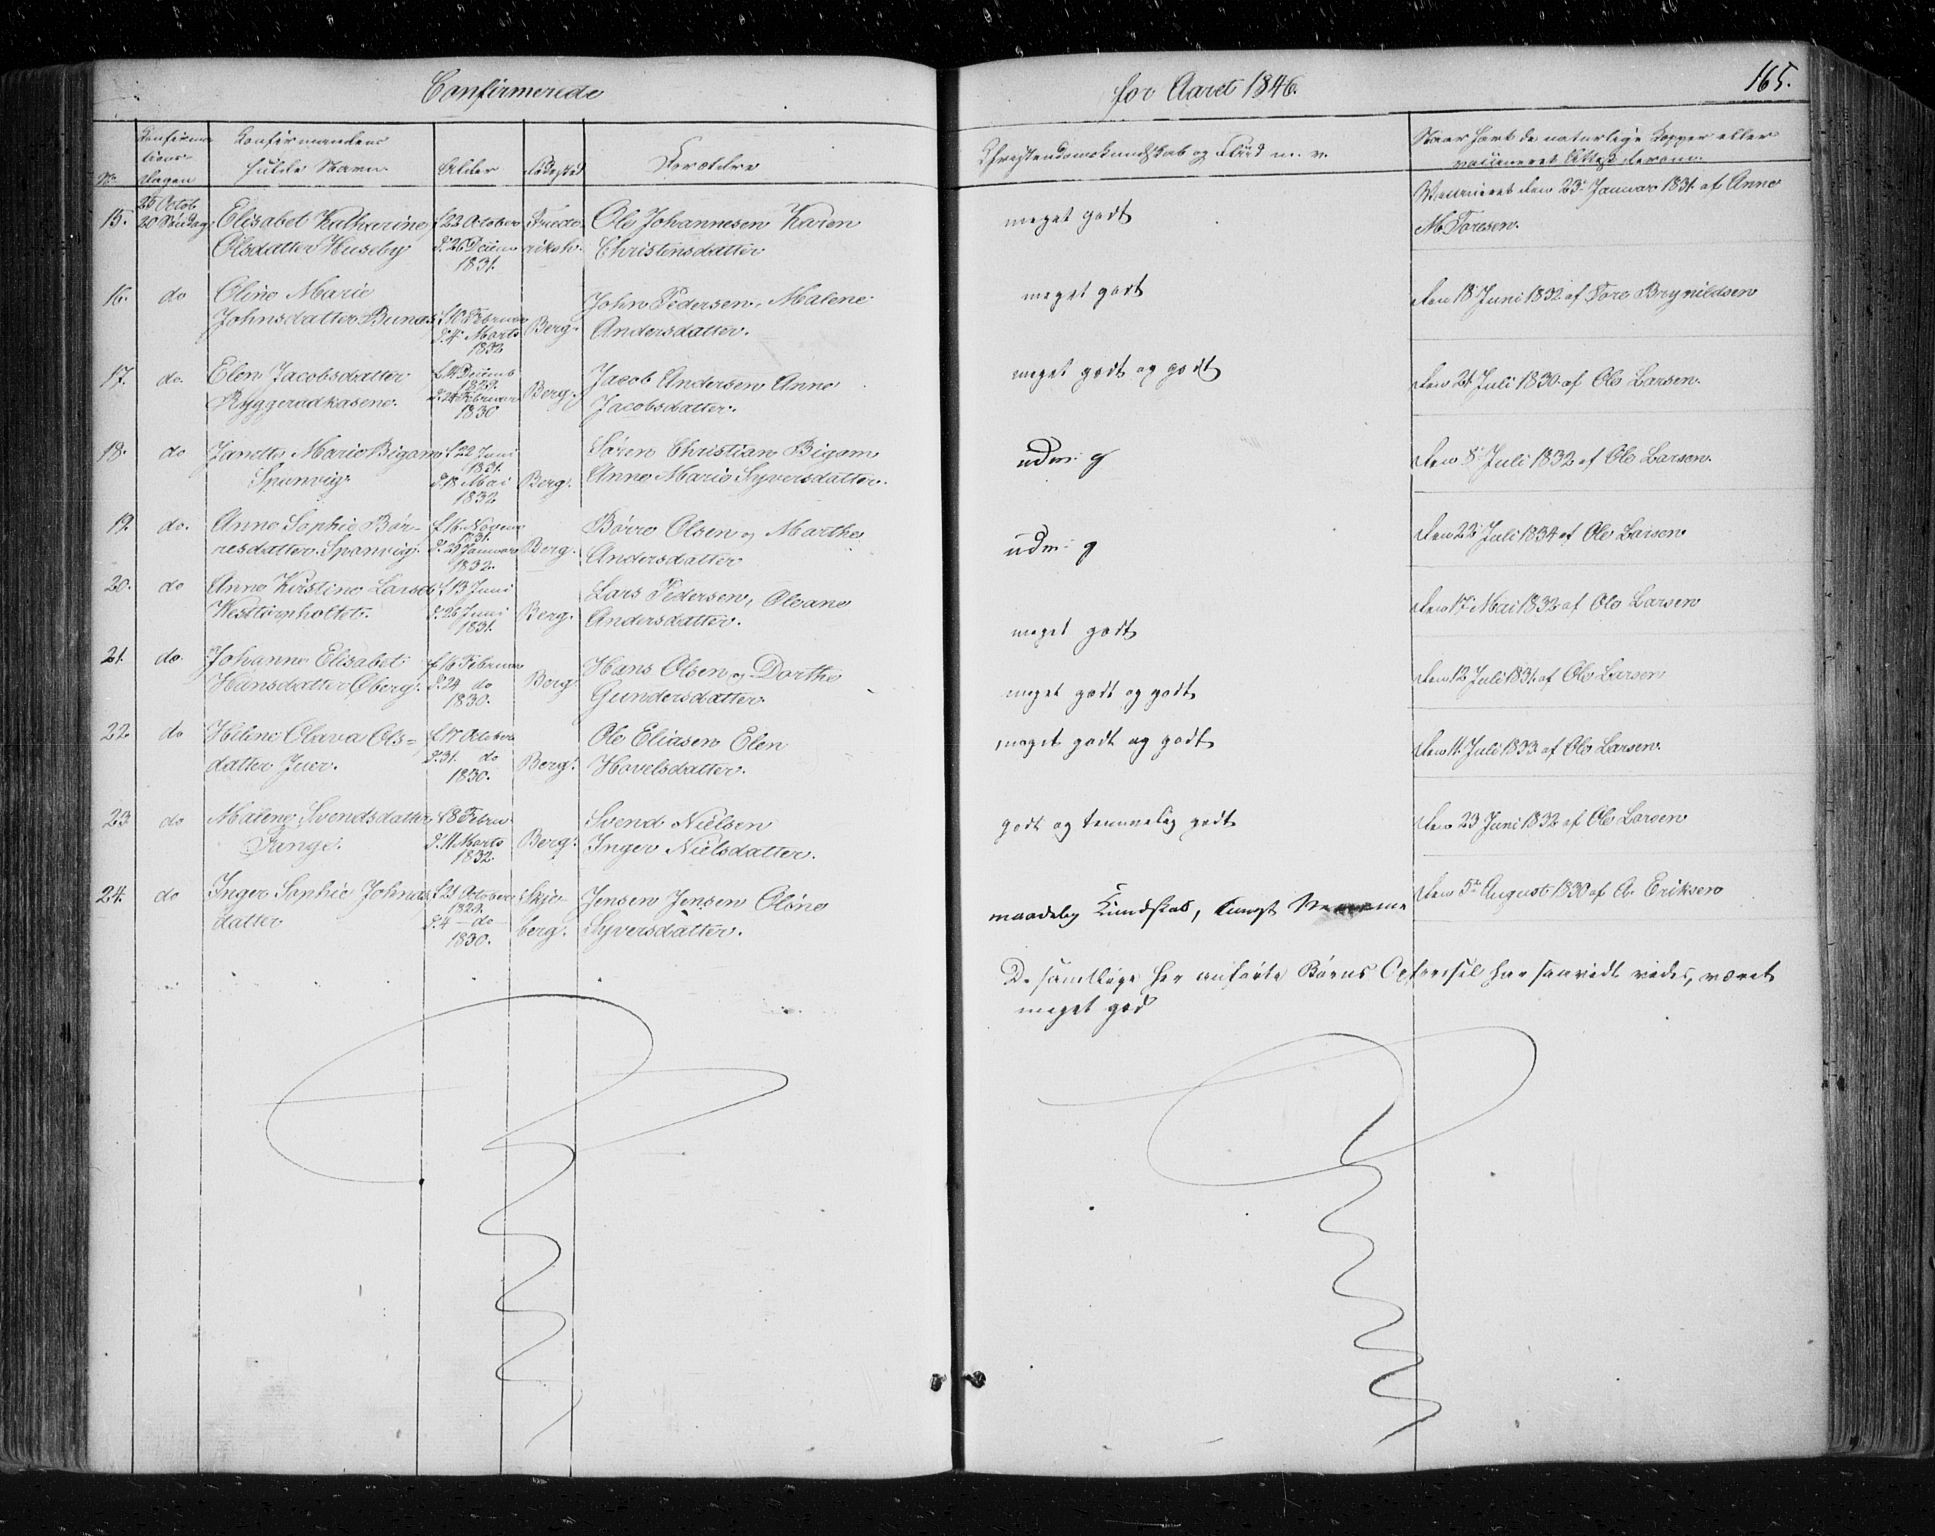 Confirmerede
for Aaret 1846.
165.
Confirma-
tions-
Dagen
No
Konfirmandens
fulde Navn.
Alder
Fødested
Forældre
Christendomskundskab og Flid m. v.
Naar havt de naturlige Kopper eller
vaccineret Attest derom.
15.
25 Octob
20 Søndag
Elisabet Katharine
Olsdatter Huseby
f. 22 October
d. 26 Decem
1831.
Frede-
riksh.
Ole Johannesen Karen
Christensdatter
meget godt
Vaccineret den 23. Januar 1831. af Anne
M. Toresen.
16.
do
Oline Marie
Johnsdatter Bunæs
f. 10 Februar
d. 4. Marts
1832
Berg.
John Pedersen, Malene
Andersdatter.
meget godt
den 18 Juni 1832 af Tore Brynildsen
17.
do.
Elen Jacobsdatter
Ryggeradkasene.
f. 14 Decemb
1829.
d. 24 Februar
1830
Berg.
Jacob Andersen Anne
Jacobsdatter.
meget godt og godt
den 21 Juli 1830 af Ole Larsen.
18.
do
Janette Marie Bigom
Sponvig.
f. 22 Juni
1831.
d. 18 Mai
1832
Berg.
Søren Christian Bigom
Anne Marie Syversdatter.
udm: g
den 8. Juli 1832 af Ole Larsen.
19.
do.
Anne Sophie Bør-
resdatter Sponvig.
f. 16 Novem
1831.
d. 29 Januar
1832.
Berg.
Børre Olsen og Marthe
Andersdatter
udm: g
den 22 Juli 1834 af Ole Larsen
20.
do
Anne Kirstine Larsd.
Westtornholtet.
f. 13 Juni
d. 26 Juni
1831.
Berg.
Lars Pedersen, Oleane
Andersdatter.
meget godt
den 17. Mai 1832 af Ole Larsen
21.
do.
Johanne Elisabet
Hansdatter Oberg.
f. 16 Februar
d. 24 do
1830.
Berg
Hans Olsen og Dorthe
Gundersdatter.
meget godt og godt
den 12 Juli 1831. af Ole Larsen
22.
do
Helene Olava Ols=
datter Juer.
f. 17 October
d. 31. do
1830.
Berg.
Ole Eliasen Elen
Hovelsdatter.
meget godt og godt
den 11. Juli 1833 af Ole Larsen.
23.
do
Malene Svendsdatter
Funge.
f. 8 Febru
d. 11 Marts
1832.
Berg.
Svend Nielsen
Inger Nielsdatter.
godt og temmelig godt
den 23 Juni 1832 af Ole Larsen
24.
do
Inger Sophie Johnas
datter
f. 21 October
1829.
d. 4 do
1830.
Skje-
berg.
Jensen Jensen Oline
Syversdatter.
maadelig Kundskab, tungt Nemme
den 5te August 1830 af A. Eriksen
De samtlige her anførte Børns Opførsel har saavidt vides, været
meget god